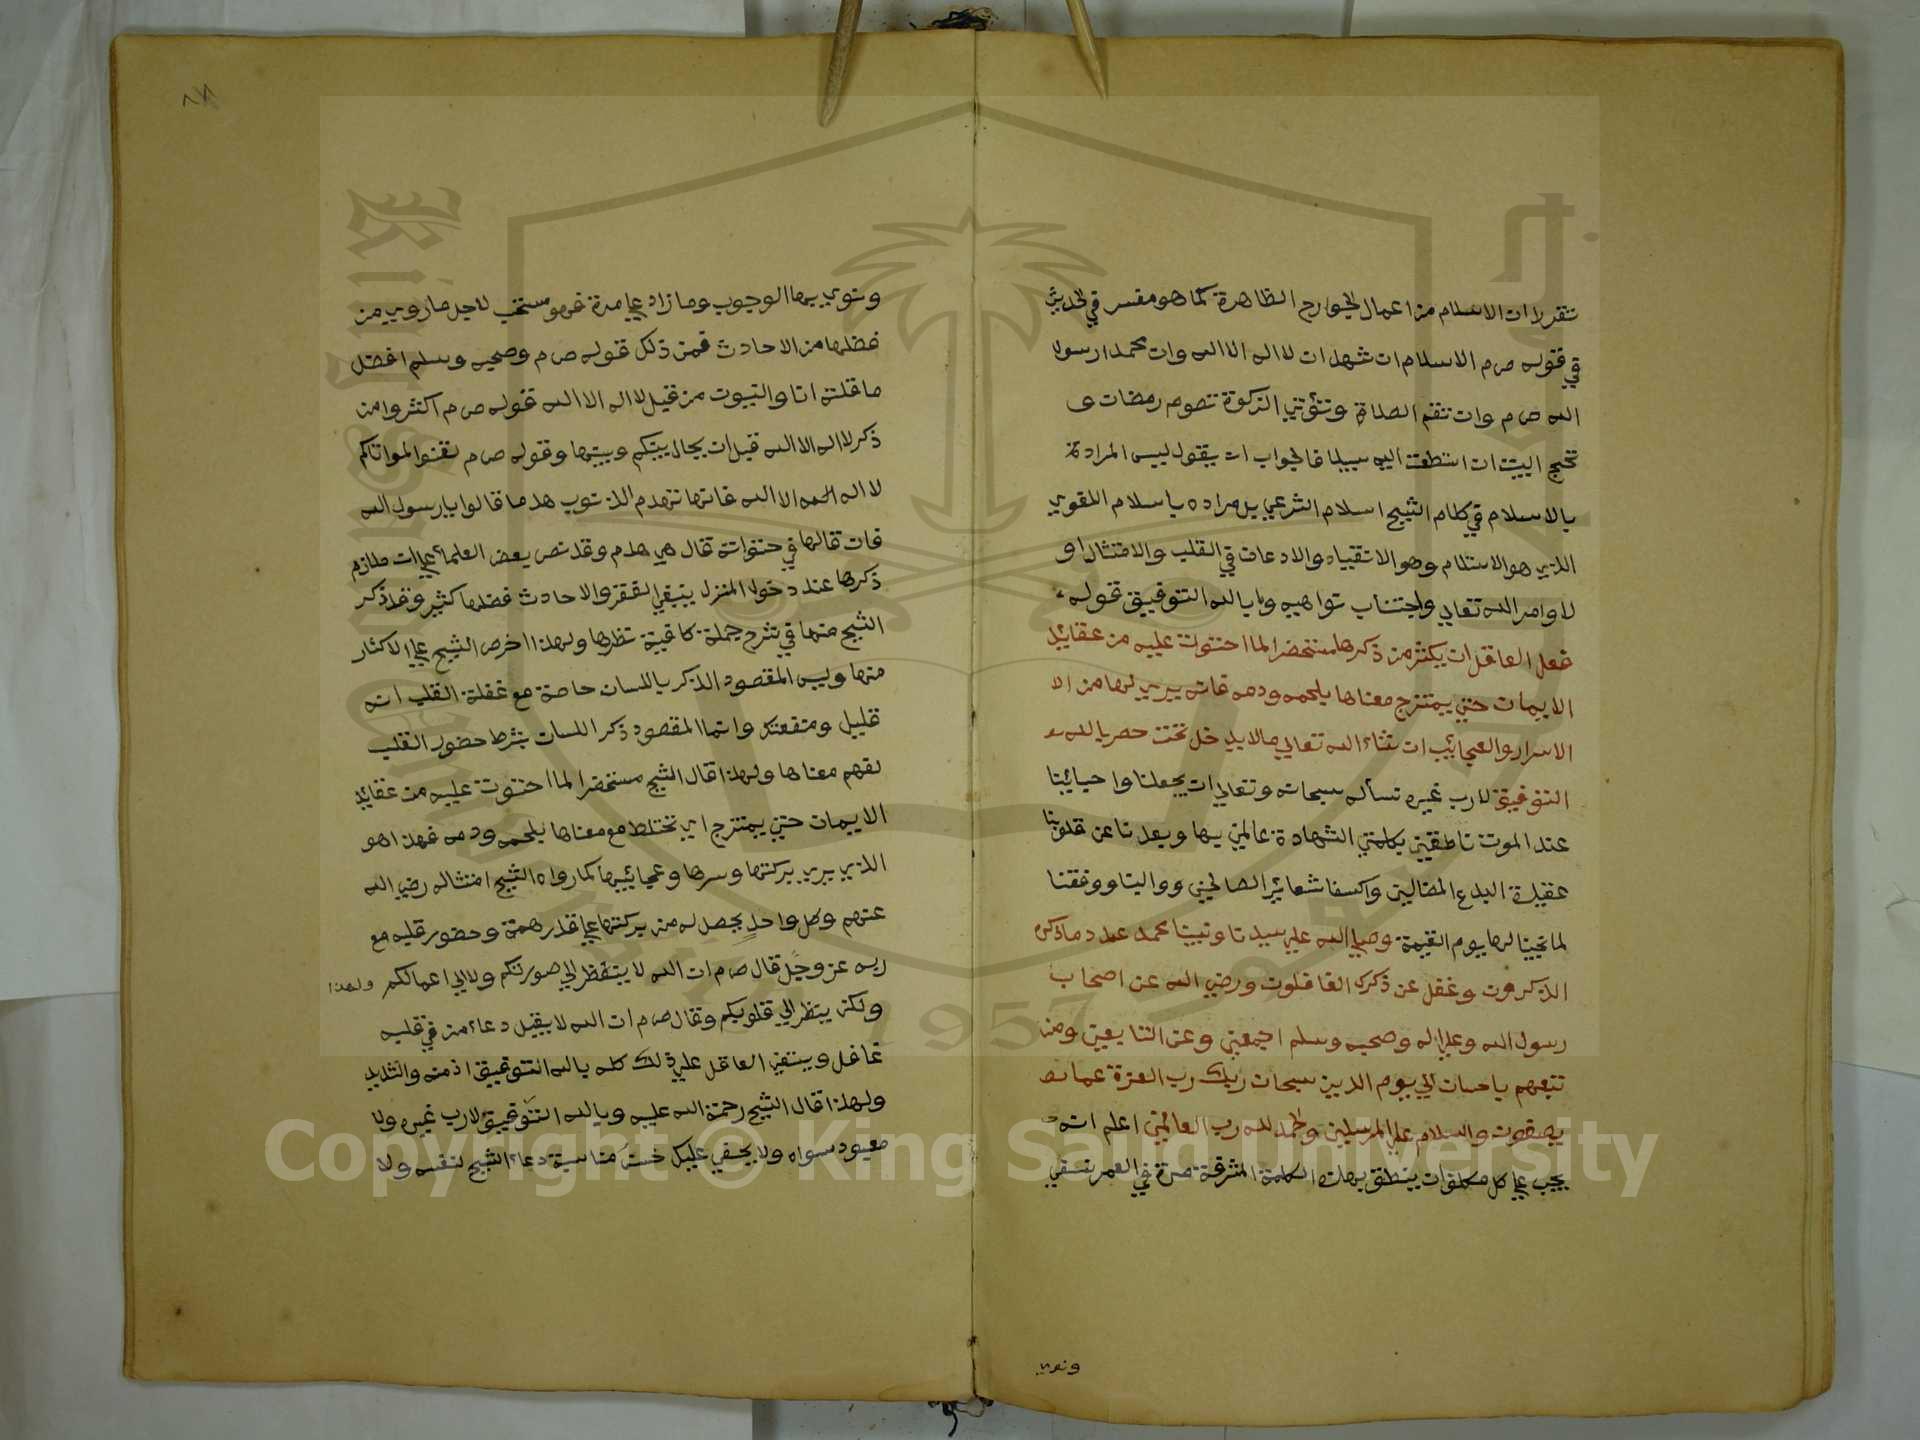 تقرر ان الاسلام من اعمال الجوارح الظاهرة كما هو مفسر في الحديث
في قوله ص م الاسلام ان تشهد ان لا اله الا الله وان محمدا رسول
الله ص م وان تقم الصلاة وتؤتي الزكوة تصوم رمضان و
تحج البيت ان استطعت اليه سبيلا فالجواب ان يقول ليس المراد
بالاسلام في كلام الشيخ اسلام الشرعي بل مراده باسلام اللغوي
الذي هو الاستلام وهو الانقياد والاذعان في القلب والامتثال او
لاوامر الله تعالي واجتناب نواهيه وبالله التوفيق قوله
فعل العاقل ان يكثر من ذكرها مستحضرا لما احتوت عليه من عقايد
الايمان حتي يمتزج معناها بلحمه ودمه فانه يري لها من الا
الاسرار والعجائب ان شاء الله تعالي مالا يدخل تحت حصر بالله
التوفيق لا رب غيره نسأله سبحانه وتعالي ان يجعلنا واحبائنا
عند الموت ناطقين بكلمتي الشهادة عالمين بها وبعدنا عن قلوبنا
عقيدة البدع المضالين واكسنا شعائر الصالحين ووالينا ووفقنا
لما تحيينا لها يوم القيمة وصلي الله علي سيدنا ونبينا محمد عدد ما ذكره
الذكرون وغفل عن ذكره الغافلون ورضي الله عن اصحاب
رسول الله وعلي اله وصحبه وسلم اجمعين وعن التابعين ومن
تبعهم باحسان الي يوم الدين سبحان ربك رب العزة عما يص
يصفون والسلام علي المرسلين والحمد لله رب العالمين اعلم انه
يجب علي كل مكلف ان ينطق بهذه الكلمة المشرفة مرة في العمر
ونوي
٨٧
وينوي بها الوجوب وما زاد علي مرة فهو مستحب لاجل ما روي من
فضلها من الاحادث فمن ذلك قوله ص م وصحبه وسلم افضل
ما قلته انا والنبيون من قبل لا اله الا الله قوله ص م اكثروا من
ذكر لا اله الا الله قبل ان يحال بينكم وبينها وقوله ص م لقنوا امواتاكم
لا اله الا الله فانها تهدم الذنوب هدما قالوا يا رسول الله
فان قالها في حنواته قال هي هدم وقد نص بعض العلماء علي ان ملازم
ذكرها عند دخول المنزل ينبفي الفقر والاحادث فضلها كثير وقد ذكر
الشيخ منها في شرح جملة كافية نظرها ولهذا حرص الشيخ علي الاكثار
منها وليس المقصود الذكر باللسان خاصة مع غفلة القلب انه
قليل ومنفعته وانما المقصود ذكر اللسان بشرط حضور القلب
لفهم معناها ولهذا قال الشيخ مستحضرا لما احتوت عليه من عقائد
الايمان حتي يمتزج اي تختلط مع معناها بلحمه ودمه فهذا هو
الذي يري بركتها وسرها وعجائبها كما رواه الشيخ امتثاله رضي الله
عنهم وكل واحد يحصل له من بركتها علي قدر همة وحضور قلبه مع
ربه عز وجل قال ص م ان الله لا ينظر الي صورتكم ولا الي اعمالكم ولهذا
ولكن ينظر الي قلوبكم وقال ص م ان الله لا يقبل دعاء من في قلبه
غافل ويستعين العاقل علي ذلك كله بالله التوفيق اذ منه والتأييد
ولهذا قال الشيخ رحمة الله عليه وبالله التوفيق لا رب غيره ولا
معبود سواه ولا يخفي عليك حسن مناسبة دعاء الشيخ لنفسه ولا
Copyright © King Saud University
King Saud University
1957